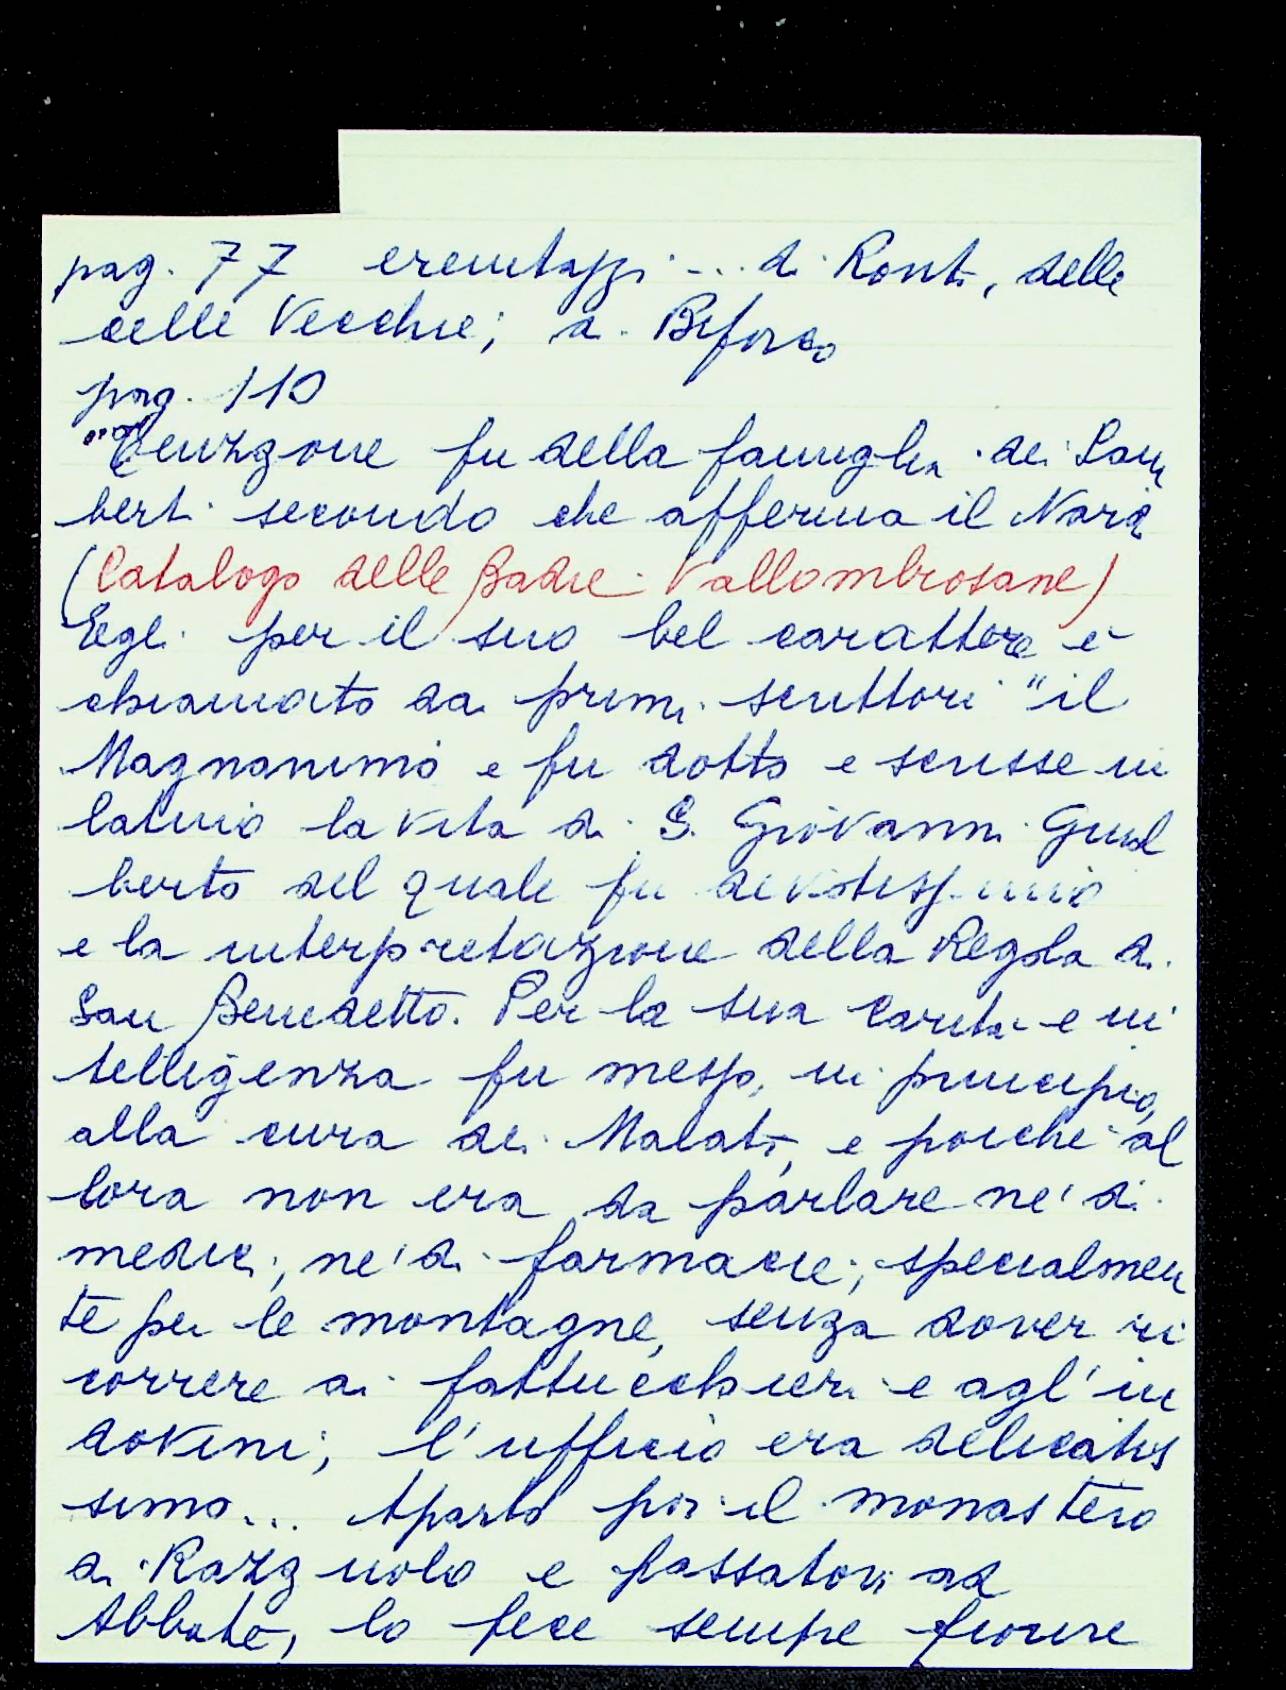 pag. 77 eremitaggi ... di Ronti, delle
celle Vecchie; di Biforco
pag. 110
fu della famiglia dei Lam
berti secondo che afferma il Nardi
(Catalogo delle Badie Vallombrosane)
Egli per il suo bel carattere è
chiamato dai primi scrittori "il
Magnanimo e fu dotto e scrisse in
latino la vita di S. Giovanni Gual
berto del quale fu devotissimo
e la interpretazione della Regola di
San Benedetto. Per la sua carità e in
telligenza fu messo, in principio,
alla cura dei Malati, e poiché al
lora non era da parlare né di
medici, né di farmacie, specialmen
te per le montagne, senza dover ri
correre ai fattucchieri e agl'in
dovini, l'ufficio era delicatis
simo... Aparto poi il monastero
di Razzuolo e passatovi ad
Abbate, lo fece sempre fiorire